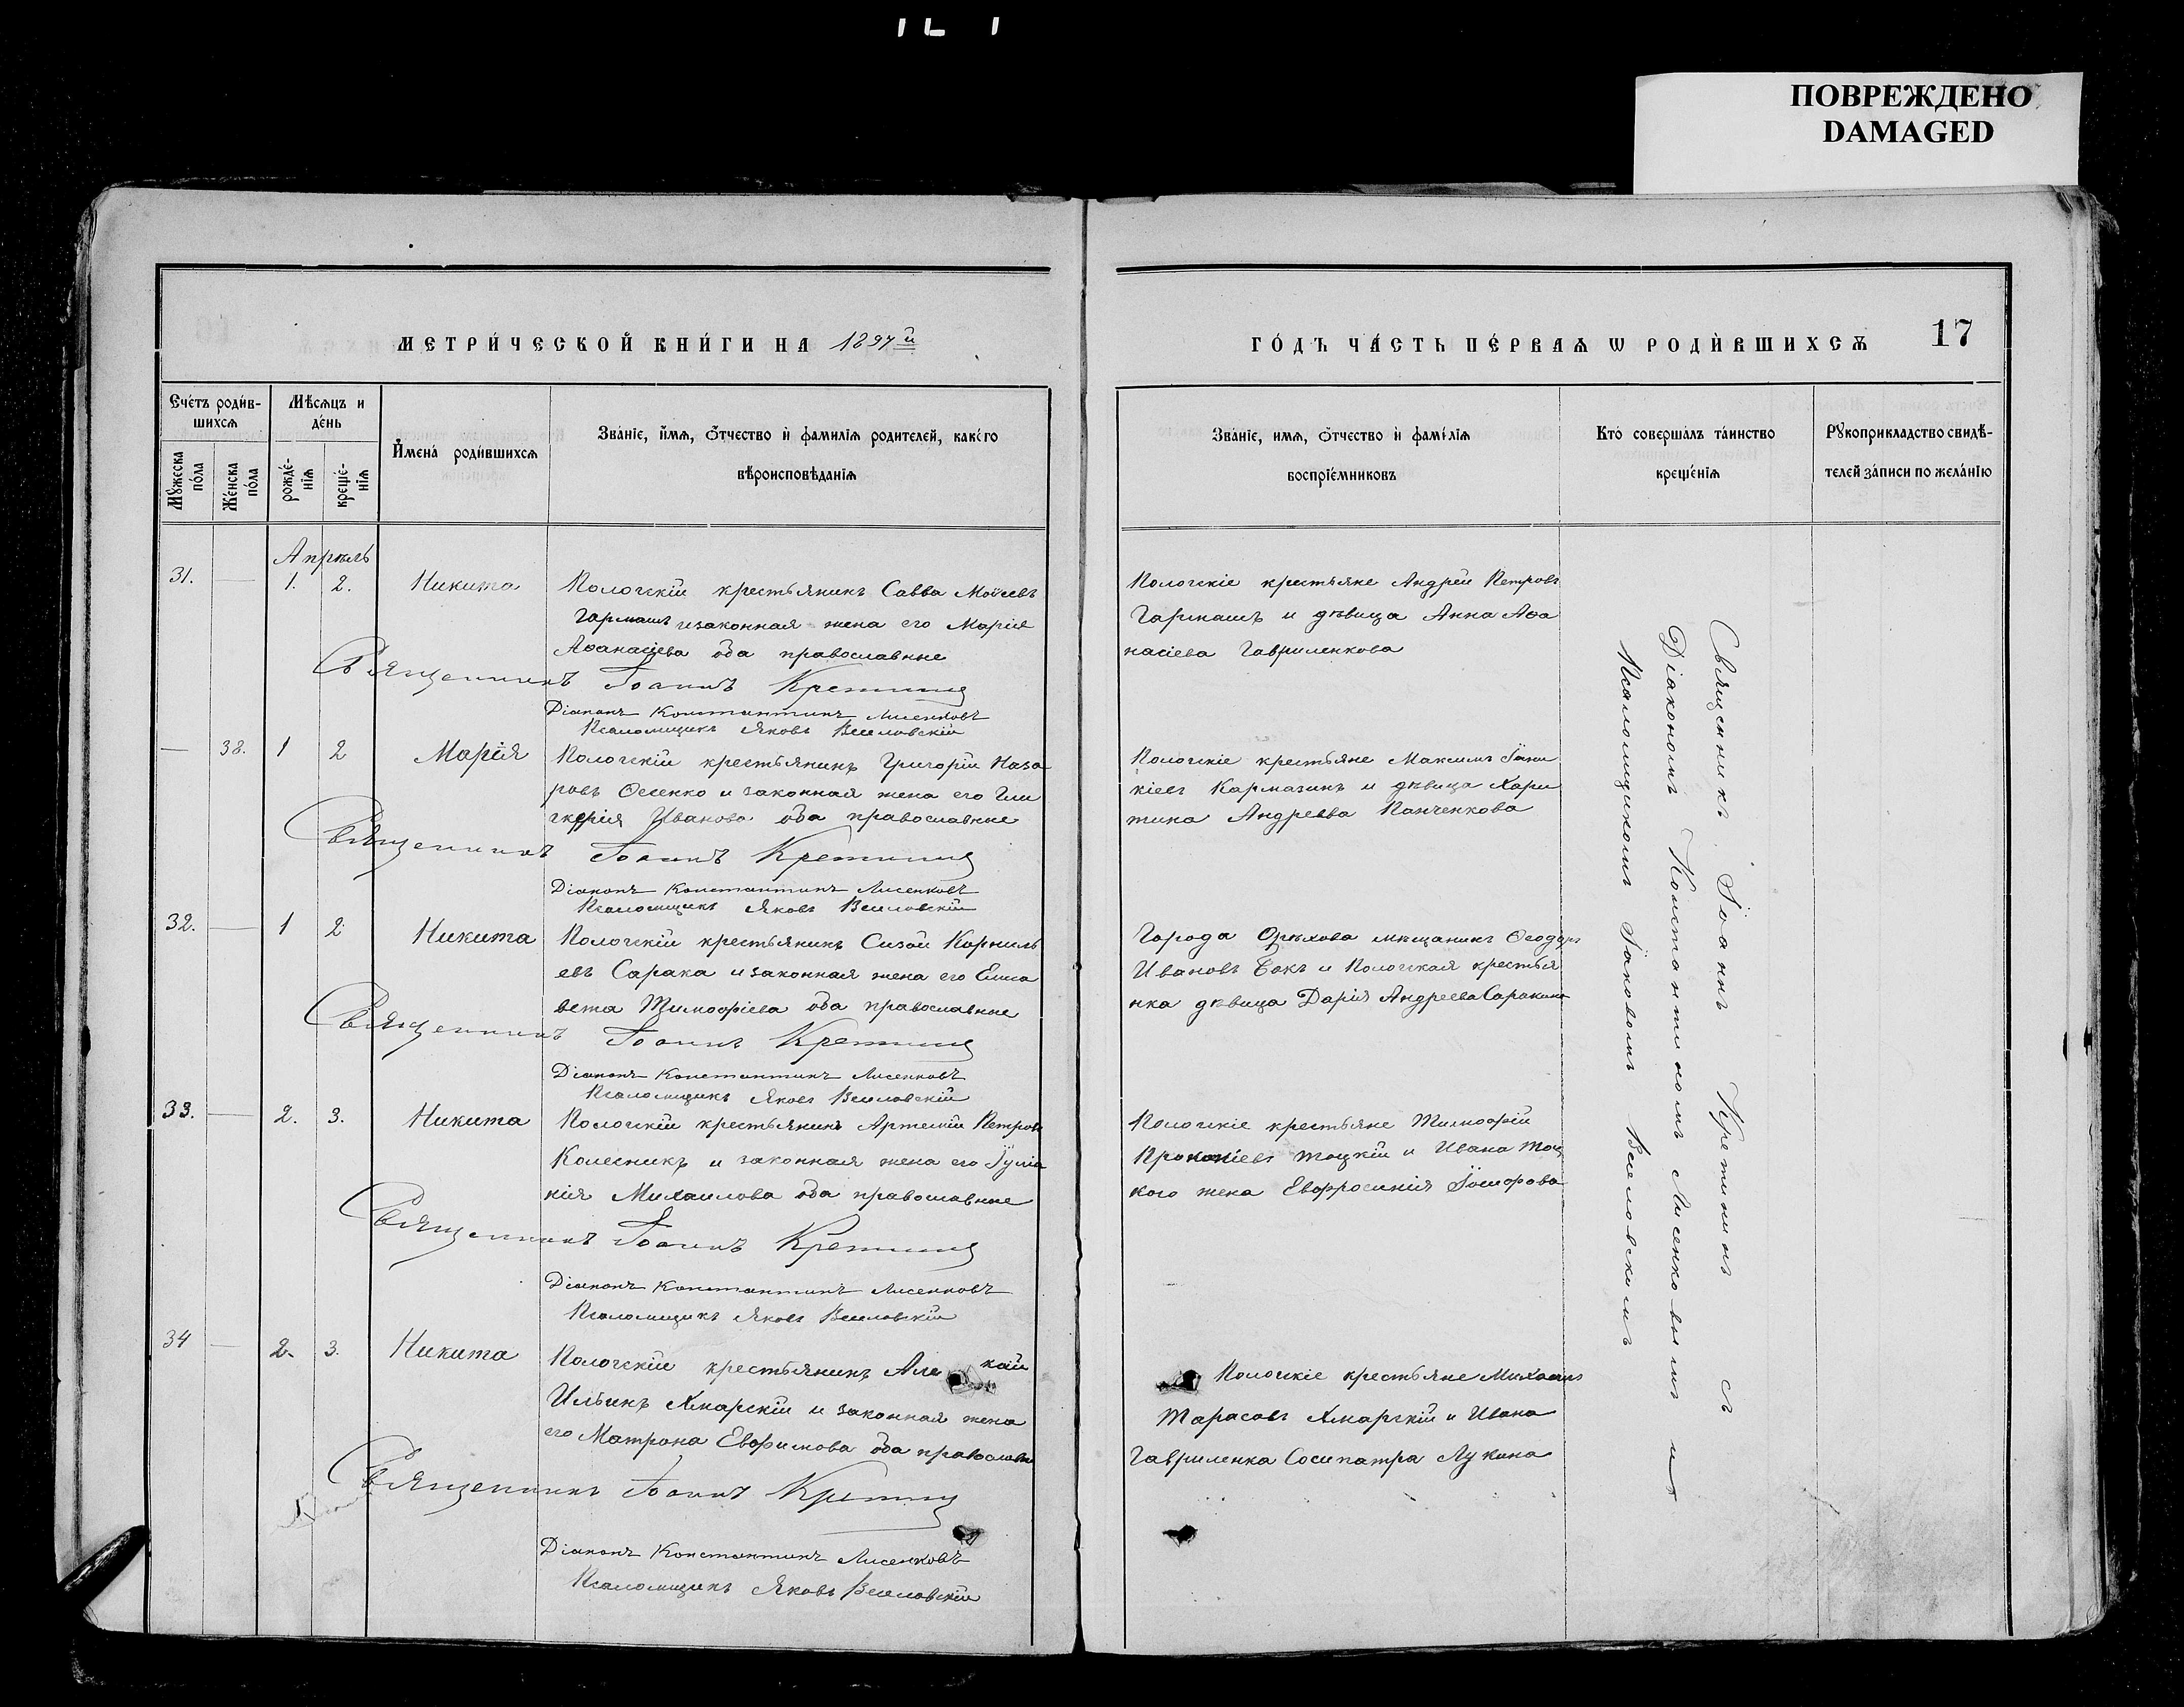 ПОВРЕЖДЕНО
DAMAGED
МЕТРИ́ЧЕСКОЙ КНИ́ГИ НА 1897й
ГО́ДЪ ЧА́СТЬ ПЕ́РВАѦ Ѡ РОДИ́ВШИХСѦ 17
Сче́тъ роди́в-
шихсѧ
Мꙋ́жеска по́ла
Же́нска по́ла
Мѣ́сѧцъ и
де́нь
рожде́-
нїѧ
креще́-
нїѧ
И҆мена́ роди́вшихсѧ
Зва́нїе, и҆́мѧ, ѻ҆́тчество и҆ фами́лїѧ роди́телей, како́гѡ
вѣроисповѣ́данїѧ
Зва́нїе, имѧ, ѻ҆́тчество и҆ фами́лїѧ
воспрїе́мниковъ
Кто̀ соверша́лъ та́инство
креще́нїѧ
Рꙋкоприкла́дство свидѣ́-
телей за́писи по жела́нїю
Апрѣль
31. — 1. 2. Никита
Пологскій крестьянинъ Савва Моѵсеевъ
Гармашъ и законная жена его Марія
Аѳанасіева оба православные
Священникъ Іоаннъ Кретининъ
Діаконъ Константинъ Лисенковъ
Псаломщикъ Яковъ Веселовскій
Пологскіе крестьяне Андрей Петровъ
Гармашъ и дѣвица Анна Аѳа
насіева Гавриленкова
— 38. 1 2 Марія
Пологскій крестьянинъ Григорій Наза
ровъ Оселенко и законная жена его Гли
керія Иванова оба православные
Священникъ Іоаннъ Кретининъ
Діаконъ Константинъ Лисенковъ
Псаломщикъ Яковъ Веселовскій
Пологскіе крестьяне Максимъ Іоани
кіевъ Кармазинъ и дѣвица Хари
тина Андреева Панченкова
32. — 1 2 Никита
Пологскій крестьянинъ Сизой Корниль
евъ Сарака и законная жена его Елиса
вета Тимоѳіева оба православные
Священникъ Іоаннъ Кретининъ
Діаконъ Константинъ Лисенковъ
Псаломщикъ Яковъ Веселовскій
Города Орѣхова мѣщанинъ Ѳеодоръ
Ивановъ Бокъ и Пологская крестья
нка дѣвица Дарія Андреева
33. — 2. 3. Никита
Пологскій крестьянинъ Артемій Петровъ
Колесникъ и законная жена его Іуліа
нія Михаилова оба православные
Священникъ Іоаннъ Кретининъ
Діаконъ Константинъ Лисенковъ
Псаломщикъ Яковъ Веселовскій
Пологскіе крестьяне Тимоѳій
Прокопіевъ Тоцкій и Ивана Тоц
кого жена Евфросинія
34 — 2. 3. Никита
Пологскій крестьянинъ Але кѣй
Ильинъ Хмарскій и законная жена
его Матрона Евфимова оба православн
Священникъ Іоаннъ Кретининъ
Діаконъ Константинъ Лисенковъ
Псаломщикъ Яковъ Веселовскій
Пологскіе крестьяне Михаилъ
Тарасовъ Хмарскій и Ивана
Гавриленка Сосипатра Лукина
Священникъ Іоаннъ Кретининъ съ
Діакономъ Константиномъ Лисенковымъ и
Псаломщикомъ Іаковомъ Веселовскимъ